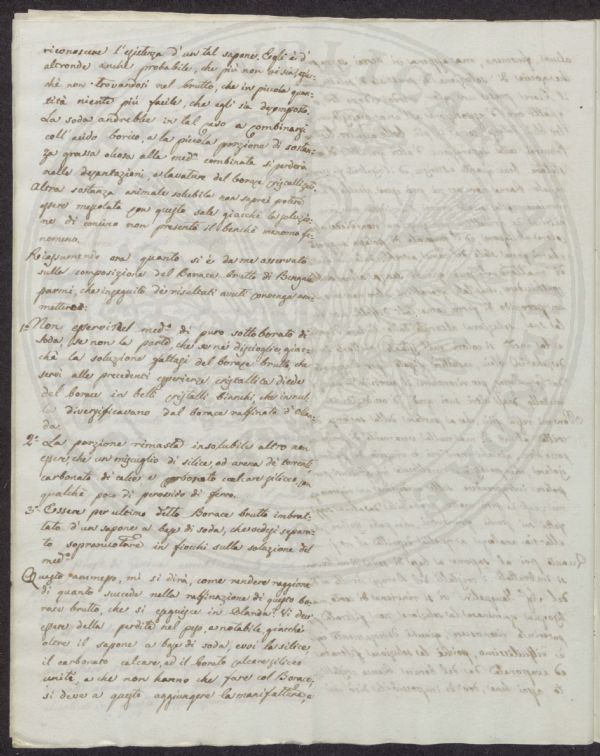 riconoscere l'esistenza d'un tal sapone. Egli è d'
altronde anche probabile, che più non vi sia,
chè non trovandosi nel brutto, che in piccola quan=
tità niente più facile, che egli sia decomposto.
La soda andrebbe in tal caso a combinarsi
coll' acido borico, e la piccola porzione di sostan=
za grassa oleosa alla med.ª combinata si perderà
nelle decantazioni, e lavature del borace
Altra sostanza animale solubile non saprei potere
essere mescolata con questo sale giacchè la soluzio=
ne di concino non presentò il benchè menomo fe=
nomeno.
Riassumerò ora quanto si è da me osservato
sulla composizione del Borace brutto di Bengala
parmi, che inseguito dei risultati avuti convenga am=
mettere:
1.º Non esservi del med.º di puro sottoborato di
soda, se non la parte che se ne discioglie; giac=
chè la soluzione del borace brutto, che
servì alle precedenti esperienze cristallizzata diede
del borace in belli cristalli bianchi, che in nul=
la diversificavano dal borace raffinato d'Olan=
da.
2.º La porzione rimasta insolubile altro non
essere, che un miscuglio di silice, od arena di torrenti
carbonato di calce, e calcare siliceo, con
qualche poco di perossido di ferro.
3.º Essere per ultimo detto Borace brutto imbrat=
tato d'un sapone a base di soda, che vedesi separa=
to sopranuotare in fiocchi sulla soluzione del
med.º
Questo mi si dirà, come rendere raggione
di quanto succede nella raffinazione di questo bo=
race brutto, che si eseguisce in Olanda? Vi deve
essere della perdita nel peso, e notabile, giacchè
oltre il sapone a base di soda, evvi la silice
il carbonato calcare, ed il borato calcare siliceo
unità, e che non hanno che fare col Borace,
si deve a questo aggiungere la manifattura, e